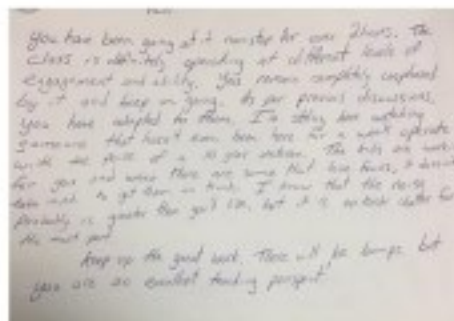 You have been going at it nonstop for over 2 hours. The
class is definitely operating at different levels of
engagement and ability. You remain completely unphased
by it and keep on going. As per previous discussions,
you have adapted to them. I'm sitting here watching
someone that hasn't even been here for a week operate
with the poise of a 10 year veteran. The kids are working
for you and while there are some that lose focus, it doesn't
take much to get them on track. I know that the noise
probably is greater than you'd like, but it is on task chatter for
the most part.
Keep up the good work. There will be bumps but
you are an excellent teaching prospect.